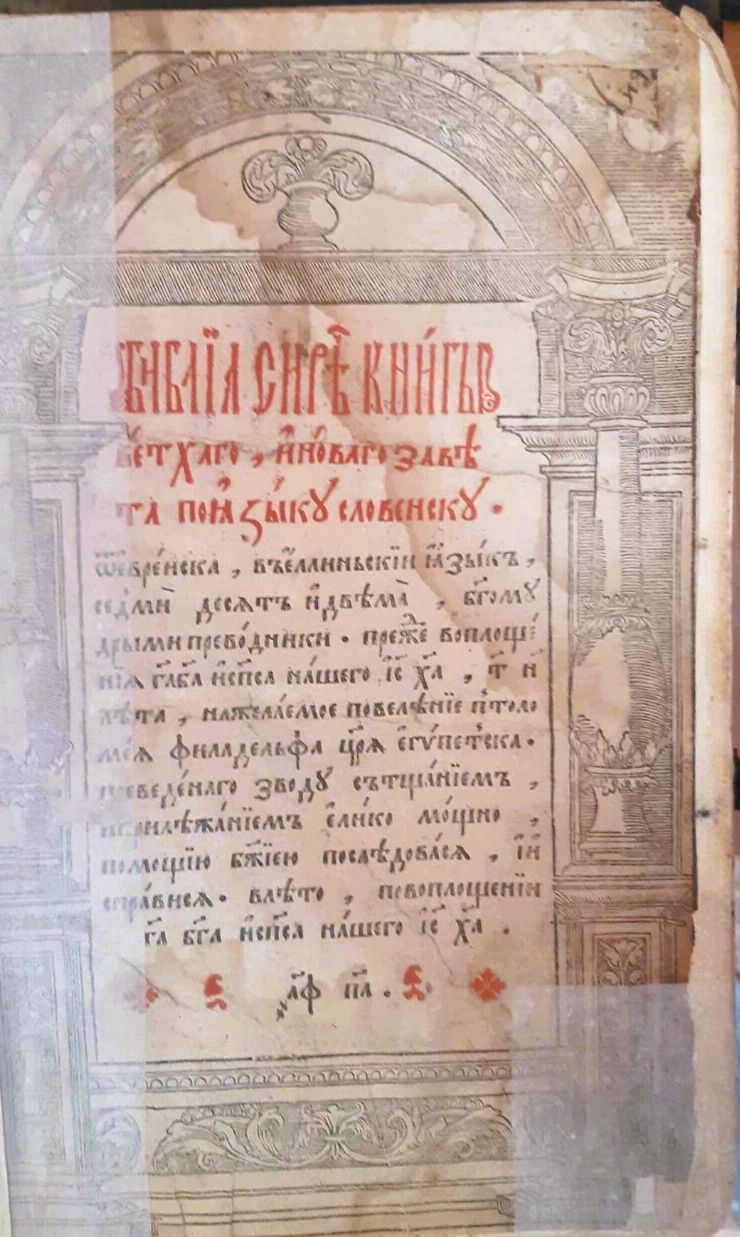 БИБЛІѦ СИРѢ҇ КНИ́ГЫ
ве́тхаго , и҆но́ваго завѣ
та поѧ҆зы́ку словенску .
ѿе҆вре́йска , въе҆ллиньскіи ꙗ҆зы́къ ,
седмѝ десѧтъ и҆двѣма̀ , бг҃ому
дрыми прево́дники . прежⷣе воплоще́
нїѧ гдⷭ҇а бга и҆сп҃са на́шего і҆с҃ хр҃а , т҃ и҆
лѣта , нажела́емое повелѣ́нїе пто́ло
меѧ филаде́льфа цр҃ѧ е҆гѵ́петска .
преведе́наго зводу сътща́нїемъ ,
иприлѣжа́нїемъ е҆ли́ко мо́щно ,
помощїю бж҃їею послѣ́довасѧ , і҆и
спра́висѧ . влѣ́то , повоплощенїи
га҃ бг҃а и҆сп҃са на́шего і҆с҃ хр҃а .
҂аф па҃ .